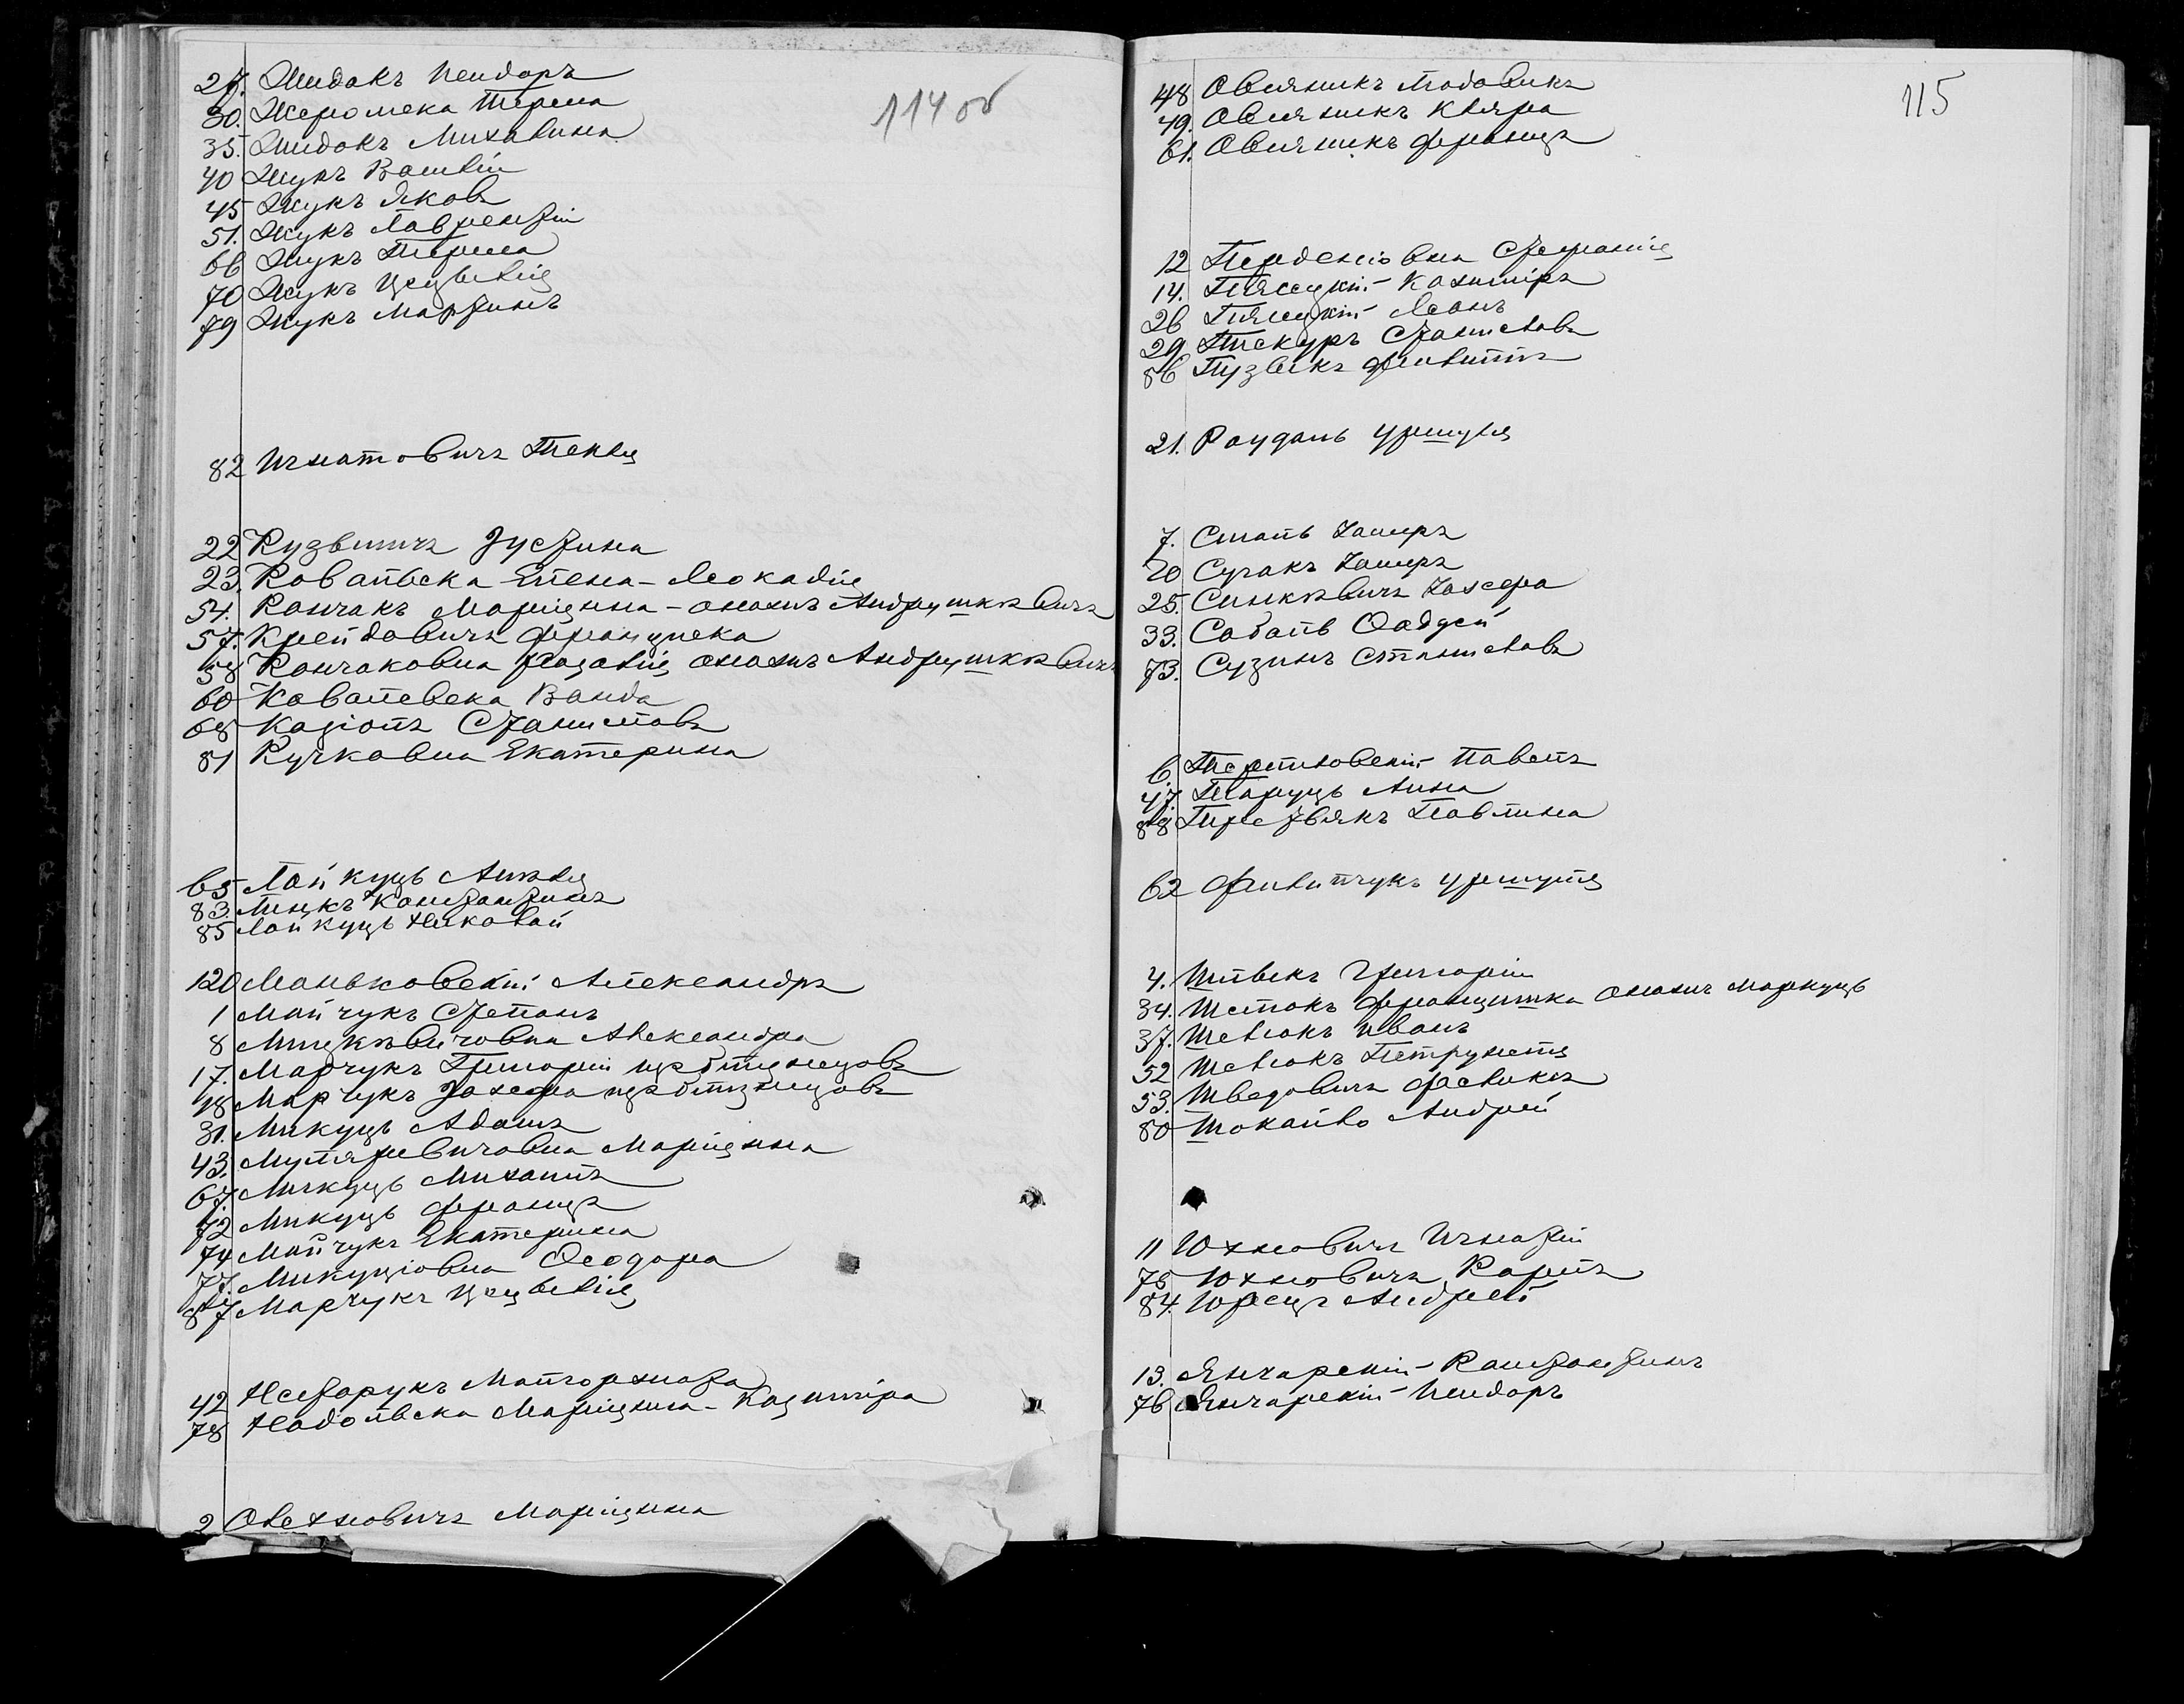 114 об
27. Жидокъ Исидоръ
30. Жеромска Тереса
35. Жидокъ Михалина
40 Жукъ Василій
45 Жукъ Яковъ
51. Жукъ Лаврентій
66 Жукъ Тереса
70 Жукъ Цецылія
79 Жукъ Мартинъ
82 Игнатовичъ Текля
22 Кузьмичъ Іустина
23. Ковальска Елена-Леокадія
54. Кончакъ Маріянна - онажъ Андрушкевичъ
57. Крейдовичъ Францишка
58 Кончаковна Розалія онажъ Андрушкевичъ
60 Ковалевска Ванда
68 Козіолъ Станиславъ
81 Кучковна Екатерина
65 Лойкуць Анеля
83. Лицкъ Константинъ
85 Лойкуць Николай
120 Маньковскій Александръ
1 Мончукъ Степанъ
8 Мицкевичовна Александра
17. Марчукъ Григорій изъ близнецовъ
18 Марчукъ Іозефа изъ близнецовъ
31. Микуць Адамъ
43. Мулярвичовна Маріянна
67. Микуць Михаилъ
72 Микуць Францъ
74 Мойчукъ Екатерина
77. Микуціовна Ѳеодора
87 Марчукъ Цецылія
42 Нестарукъ Малгоржата
78 Надольска Маріянна-Казимѣра
2 Олехновичъ Маріянна
115
48 Овсяникъ Людовикъ
49. Овсяникъ Кляра
61. Овсяникъ Францъ
12 Стефанія
14. Пясецкій Казиміръ
26 Пясецкій Леонъ
29 Пискуръ Станиславъ
86 Филиппъ
21. Уршуля
7. Смаль
20 Сучакъ
25. Синкевичъ Іозефа
33. Соболь Ѳаддей
73. Сузинъ Станиславъ
6. Павелъ
47. Анна
88 Павлина
62 Филипчукъ Уршуля
4. Григорій
34. Шелюкъ Францишка онажъ Маркуць
37. Шелюкъ Иванъ
52 Шелюкъ Петрунеля
53. Шведовичъ Феликсъ
80 Шокайло Андрей
11 Юхновичъ Игнатій
75 Юхновичъ Кароль
84. Юрецъ Андрей
13. Янчарскій Константинъ
76 Янчарскій Исидоръ